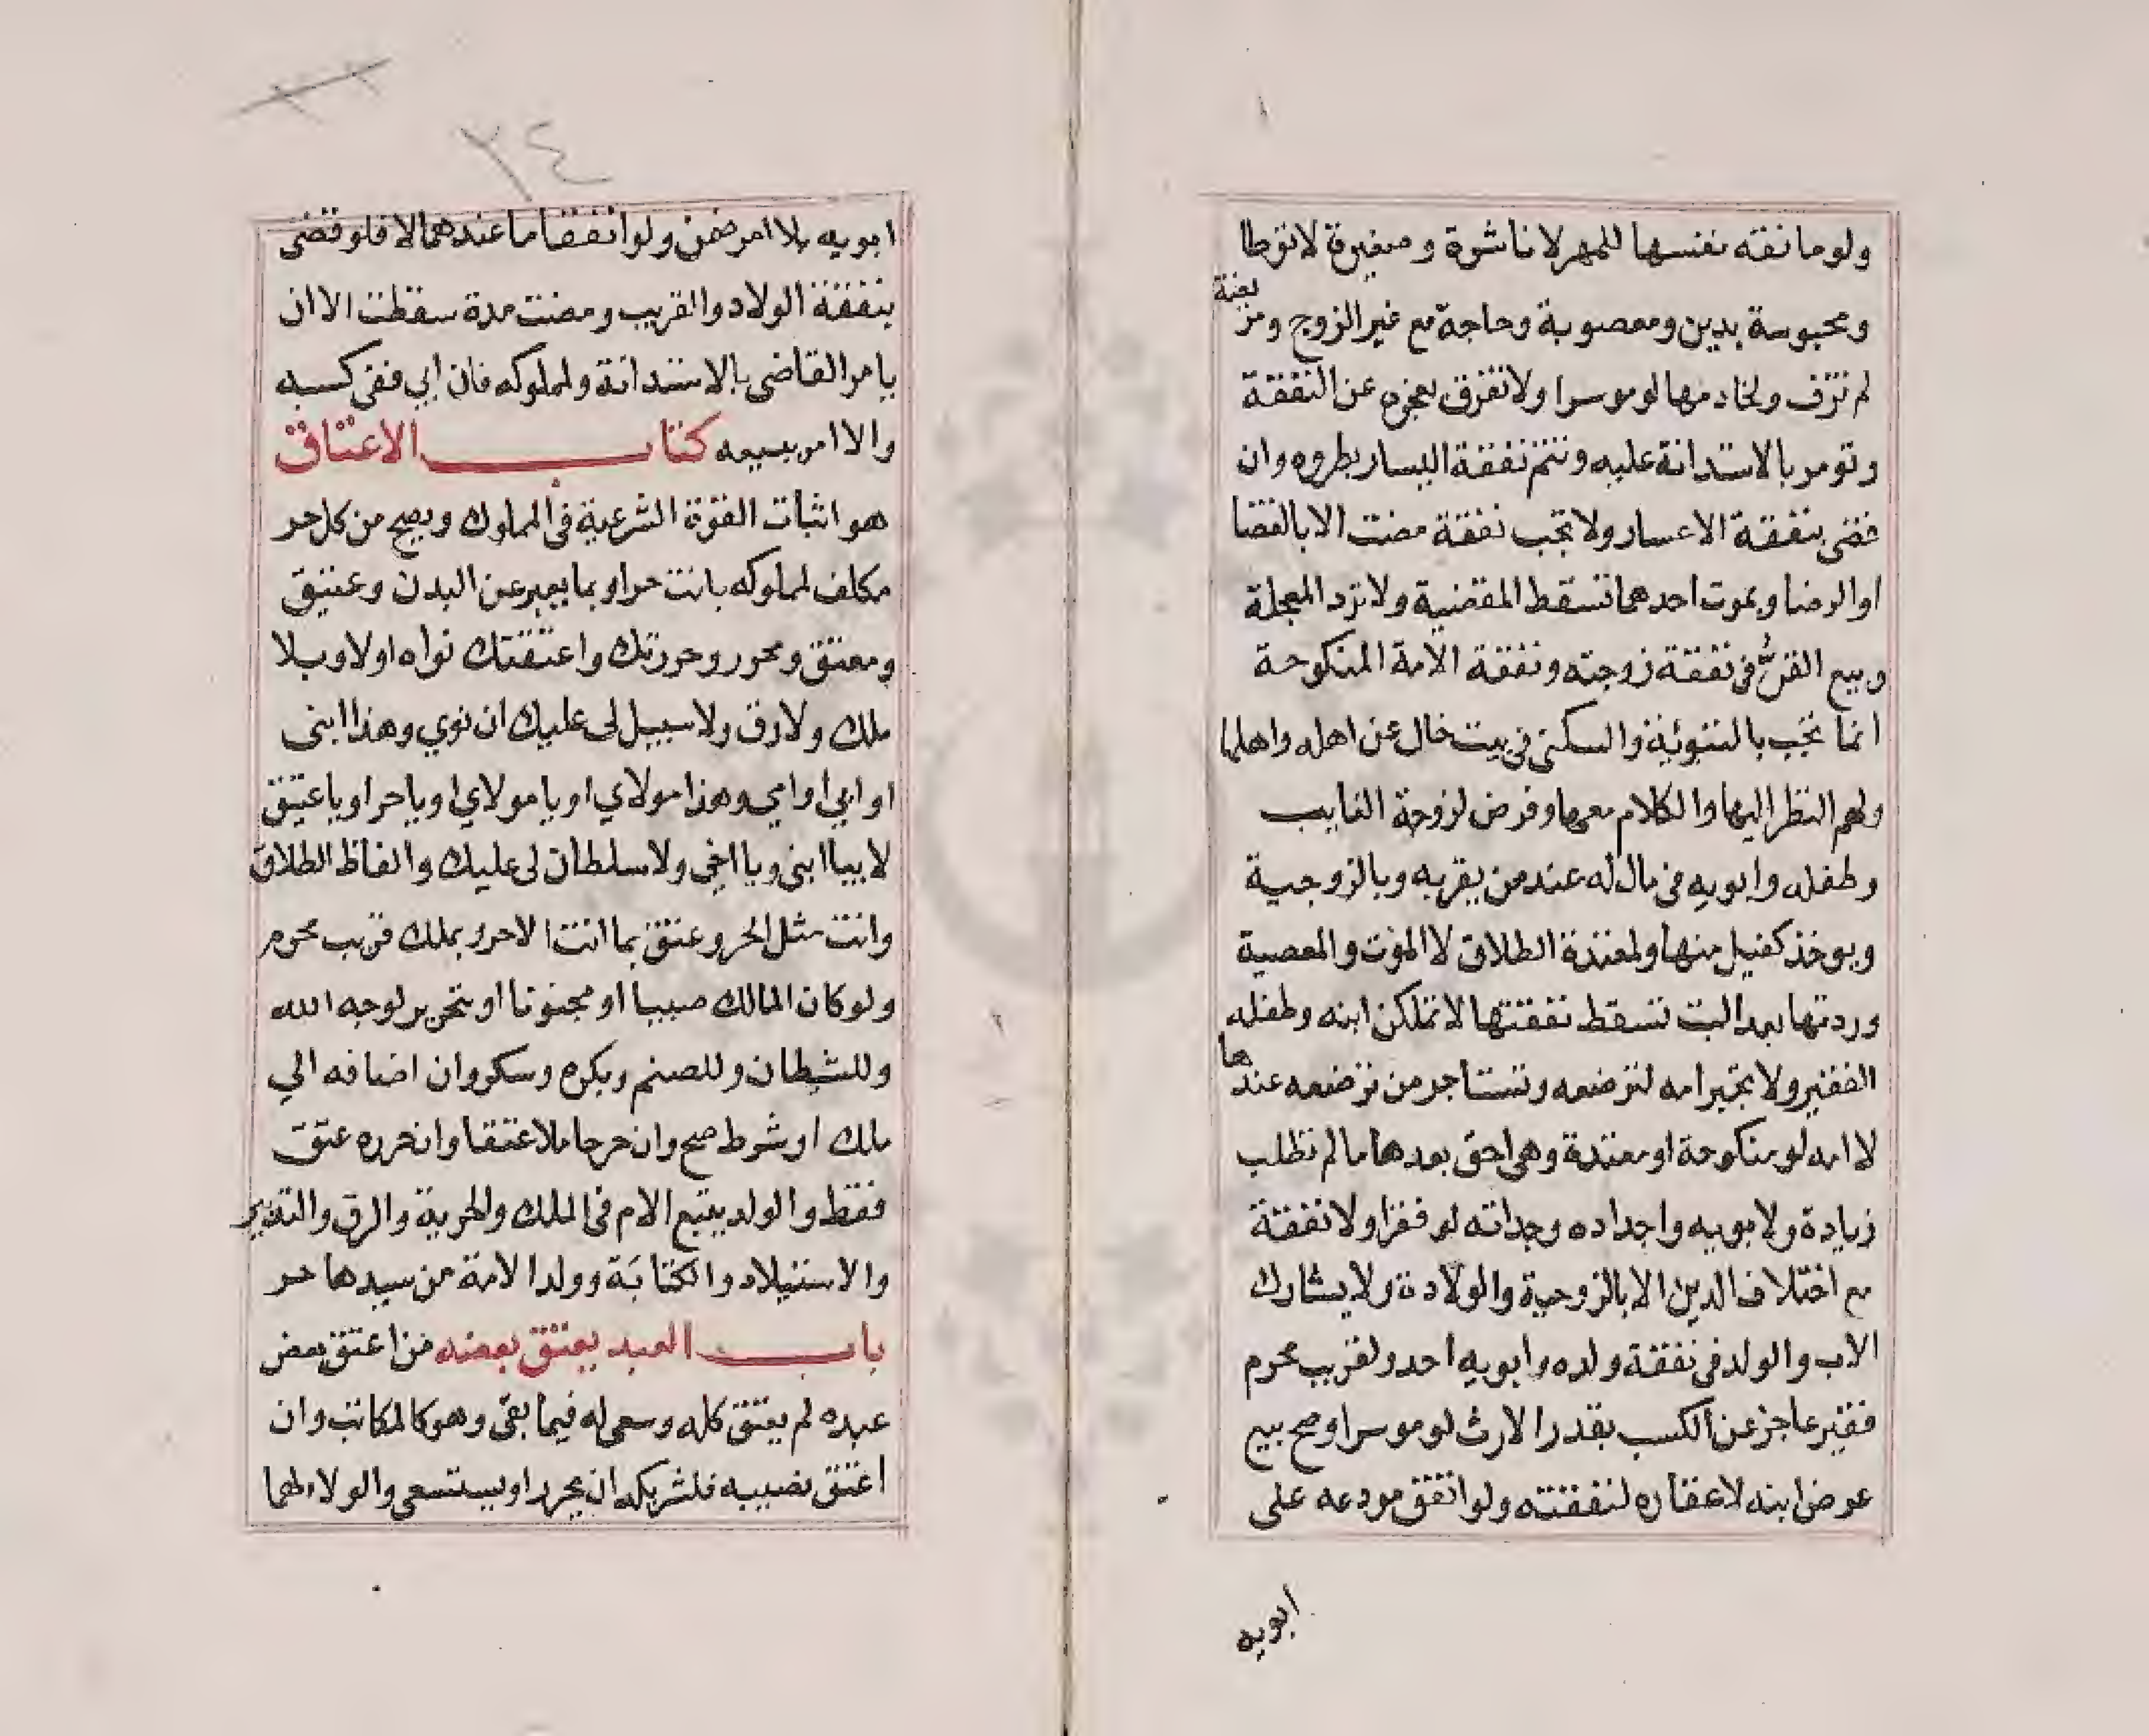 ولو مانعته نفسها للمهر لا ناشزة وصغيرة لا توطا
ومحبوسة بدين ومغصوبة وحاجة مع غير الزوج ومريضة
لم تزف ولخادمها لو موسرا ولا تفرق بعجزه عن النفقة
وتومر بالاستدانة عليه وتتم نفقة اليسار بطروه وان
قضى بنفقة الاعسار ولا تجب نفقة مضت الا بالقضا
او الرضا وبموت احدهما تسقط المقضية ولا ترد المعجلة
وبيع القن في نفقة زوجته ونفقة الامة المنكوحة
انما تجب بالتبوئة والسكنى في بيت خال عن اهله واهلها
ولهم النظر اليها والكلام معها وفرض لزوجة الغايب
وطفله وابويه في مال له عند من يقر به وبالزوجية
ويوخذ كفيل منها ولمعتدة الطلاق لا الموت والمعصية
وردتها بعد البت تسقط نفقتها لا تمكين ابنه وطفله
الفقير ولا تجبر امه لترضعه وتستاجر من ترضعه عندها
لا امه لو منكوحة او معتدة وهي احق بعدها ما لم تطلب
زيادة ولابويه واجداده وجداته لو فقرا ولا نفقة
مع اختلاف الدين الا بالزوجية والولادة ولا يشارك
الاب والولد في نفقة ولده وابويه احد ولقريب محرم
فقير عاجز عن الكسب بقدر الارث لو موسرا وصح بيع
عوض ابنه لا عقاره لنفقته ولو انفق مودعه على
ابويه
٢٤
ابويه بلا امر ضمن ولو انفقا ما عندهما لا فلو قضى
بنفقة الولاد والقريب ومضت مدة سقطت الا ان
يامر القاضى بالاستدانة ولمملوكه فان ابي ففي كسبه
والا امر ببيعه كتاب الاعتاق
هو اثبات القوة الشرعية في المملوك ويصح من كل حر
مكلف لمملوكه بانت حر او بما يعبر عن البدن وعتيق
ومعتق ومحرر وحررتك واعتقتك نواه اولا وبلا
ملك ولا رق ولا سبيل لى عليك ان نوي وهذا ابنى
او ابي او امي وهذا مولاي او يا مولاي او يا حر او يا عتيق
لا بيا ابنى ويا اخي ولا سلطان لى عليك والفاظ الطلاق
وانت مثل الحر وعتق بما انت الا حر وبملك قريب محرم
ولو كان المالك صبيا او مجنونا او بتحرير لوجه الله
وللشيطان وللصنم وبكره وسكر وان اضافه الي
ملك او شرط صح وان حرر حاملا عتقا وان حرره عتق
فقط والولد يتبع الام في الملك والحرية والرق والتدبير
والاستيلاد والكتابة وولد الامة من سيدها حر
باب العبد يعتق بعضه من اعتق بعض
عبده لم يعتق كله وسعى له فيما بقى وهو كالمكاتب وان
اعتق نصيبه فلشريكه ان يحرر او يستسعى والولاء لهما